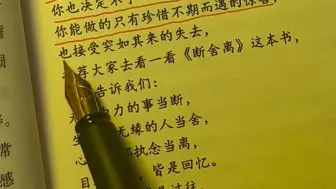 你也决定不了
你能做的只有珍惜不期而遇的惊喜,
也接受突如其来的失去,
荐大家去看一看《断舍离》这本书,
告诉我们:
力的事当断,
生 无缘的人当舍,
执念当离,
目 皆是回忆。
是过往
常
感